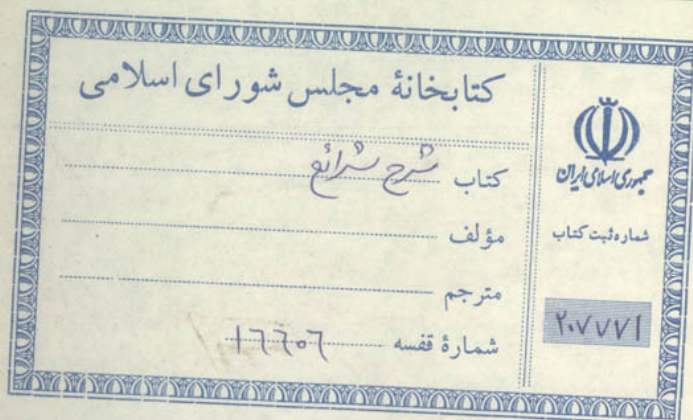 کتابخانهٔ مجلس شورای اسلامی
کتاب شرح شرائع
مؤلف
مترجم
شمارهٔ قفسه ۱۶۶۰۶
جمهوری اسلامی ایران
شماره ثبت کتاب
۲۰۷۷۷۱